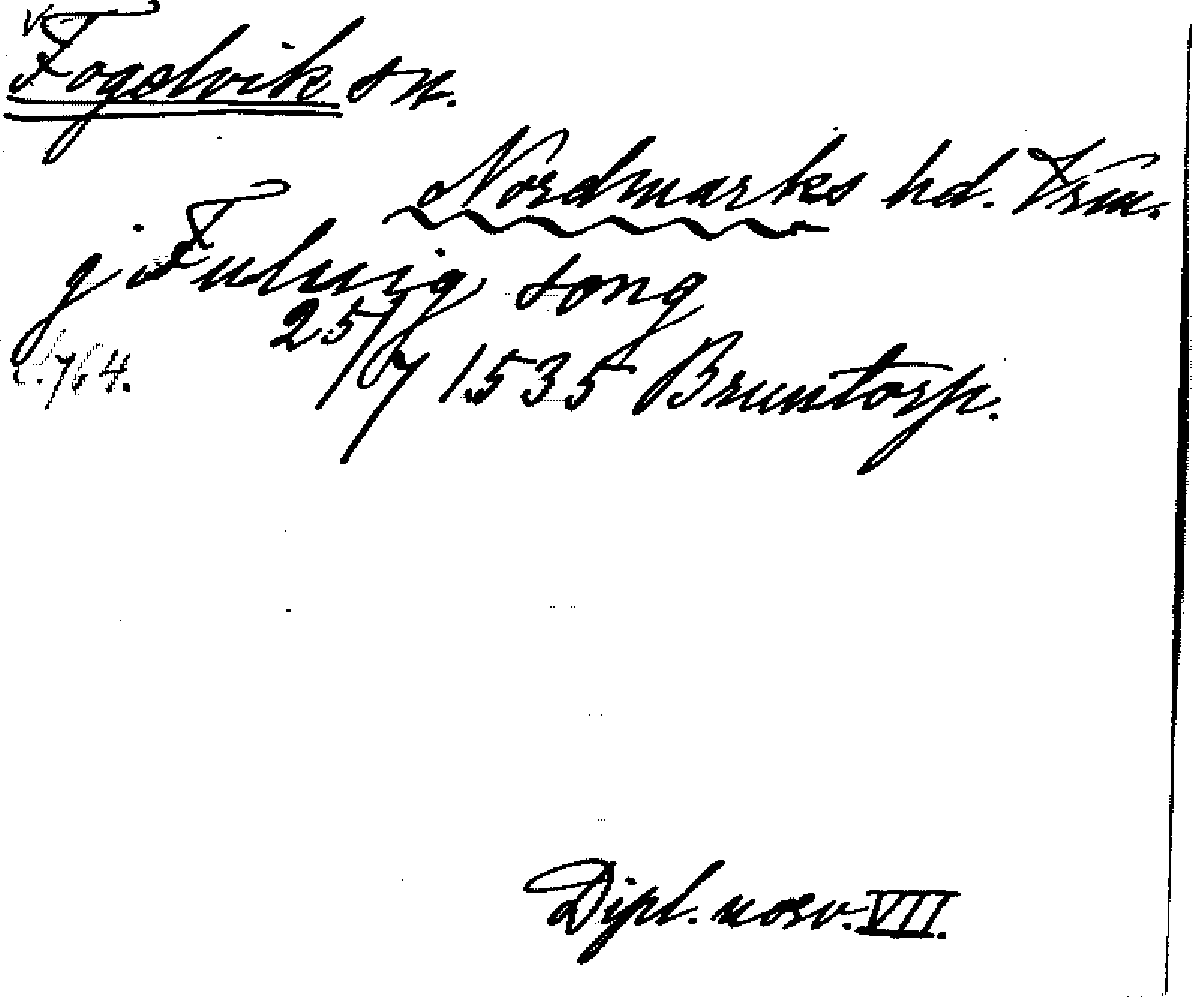 Fogelvik sn.
Nordmarks hd. Vrm.
j Fulwig song
25/7 1535 Bruntorp.
s. 764.
Dipl. norv. VII.